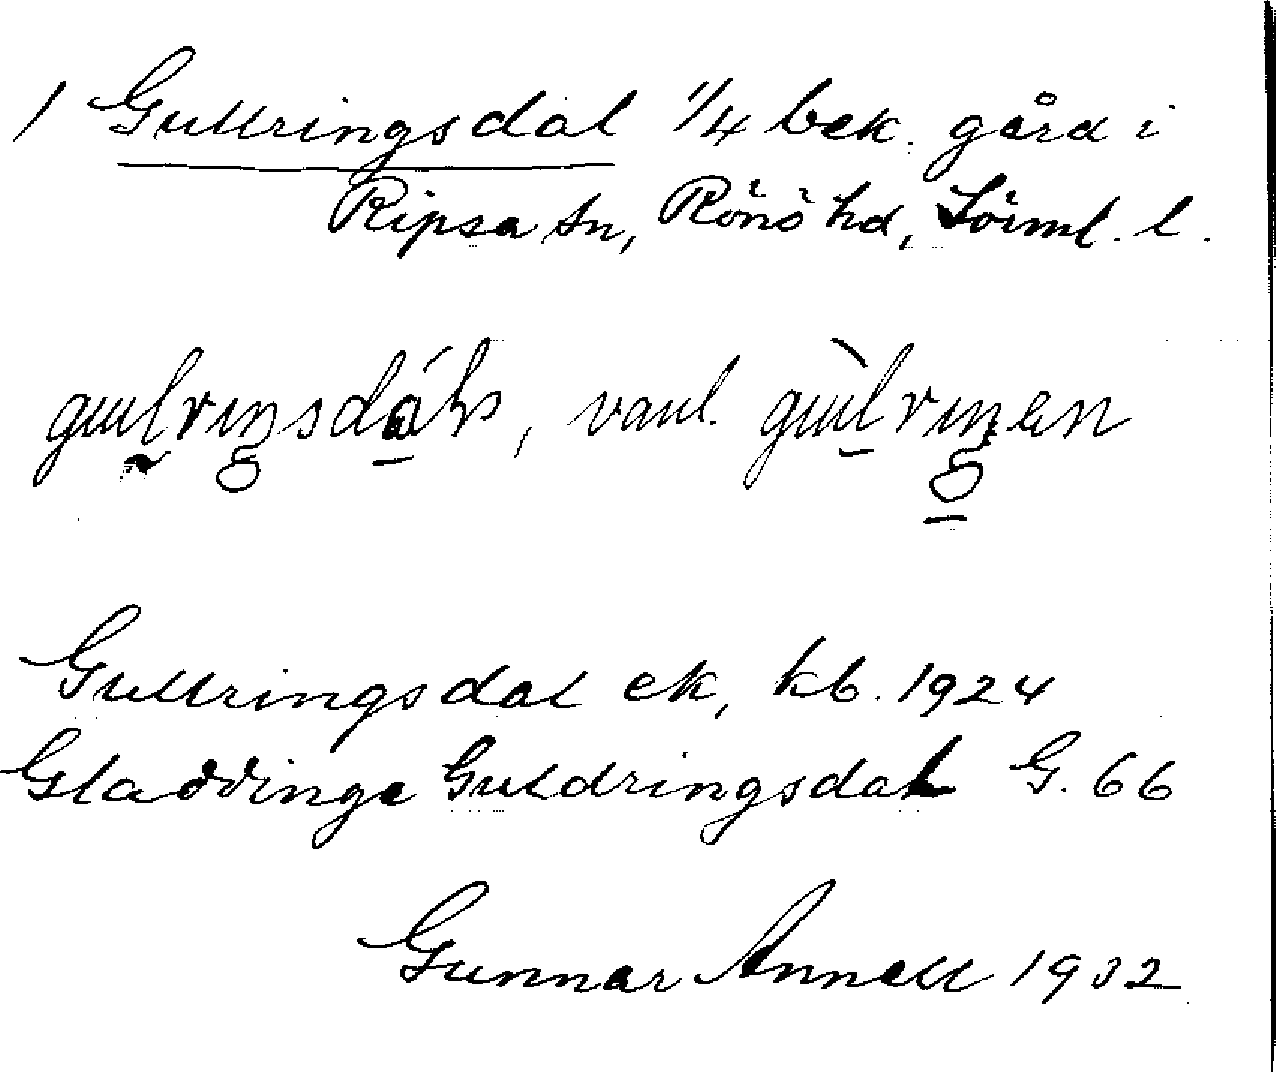 1 Gullringsdal 1/4 bek. gård i
Ripsa sn, Rönö hd, Sörml. l.
vanl.
Gullringsdal ek, kb. 1924
Gladdinge Guldringsdal G. 66
Gunnar Annell 1932